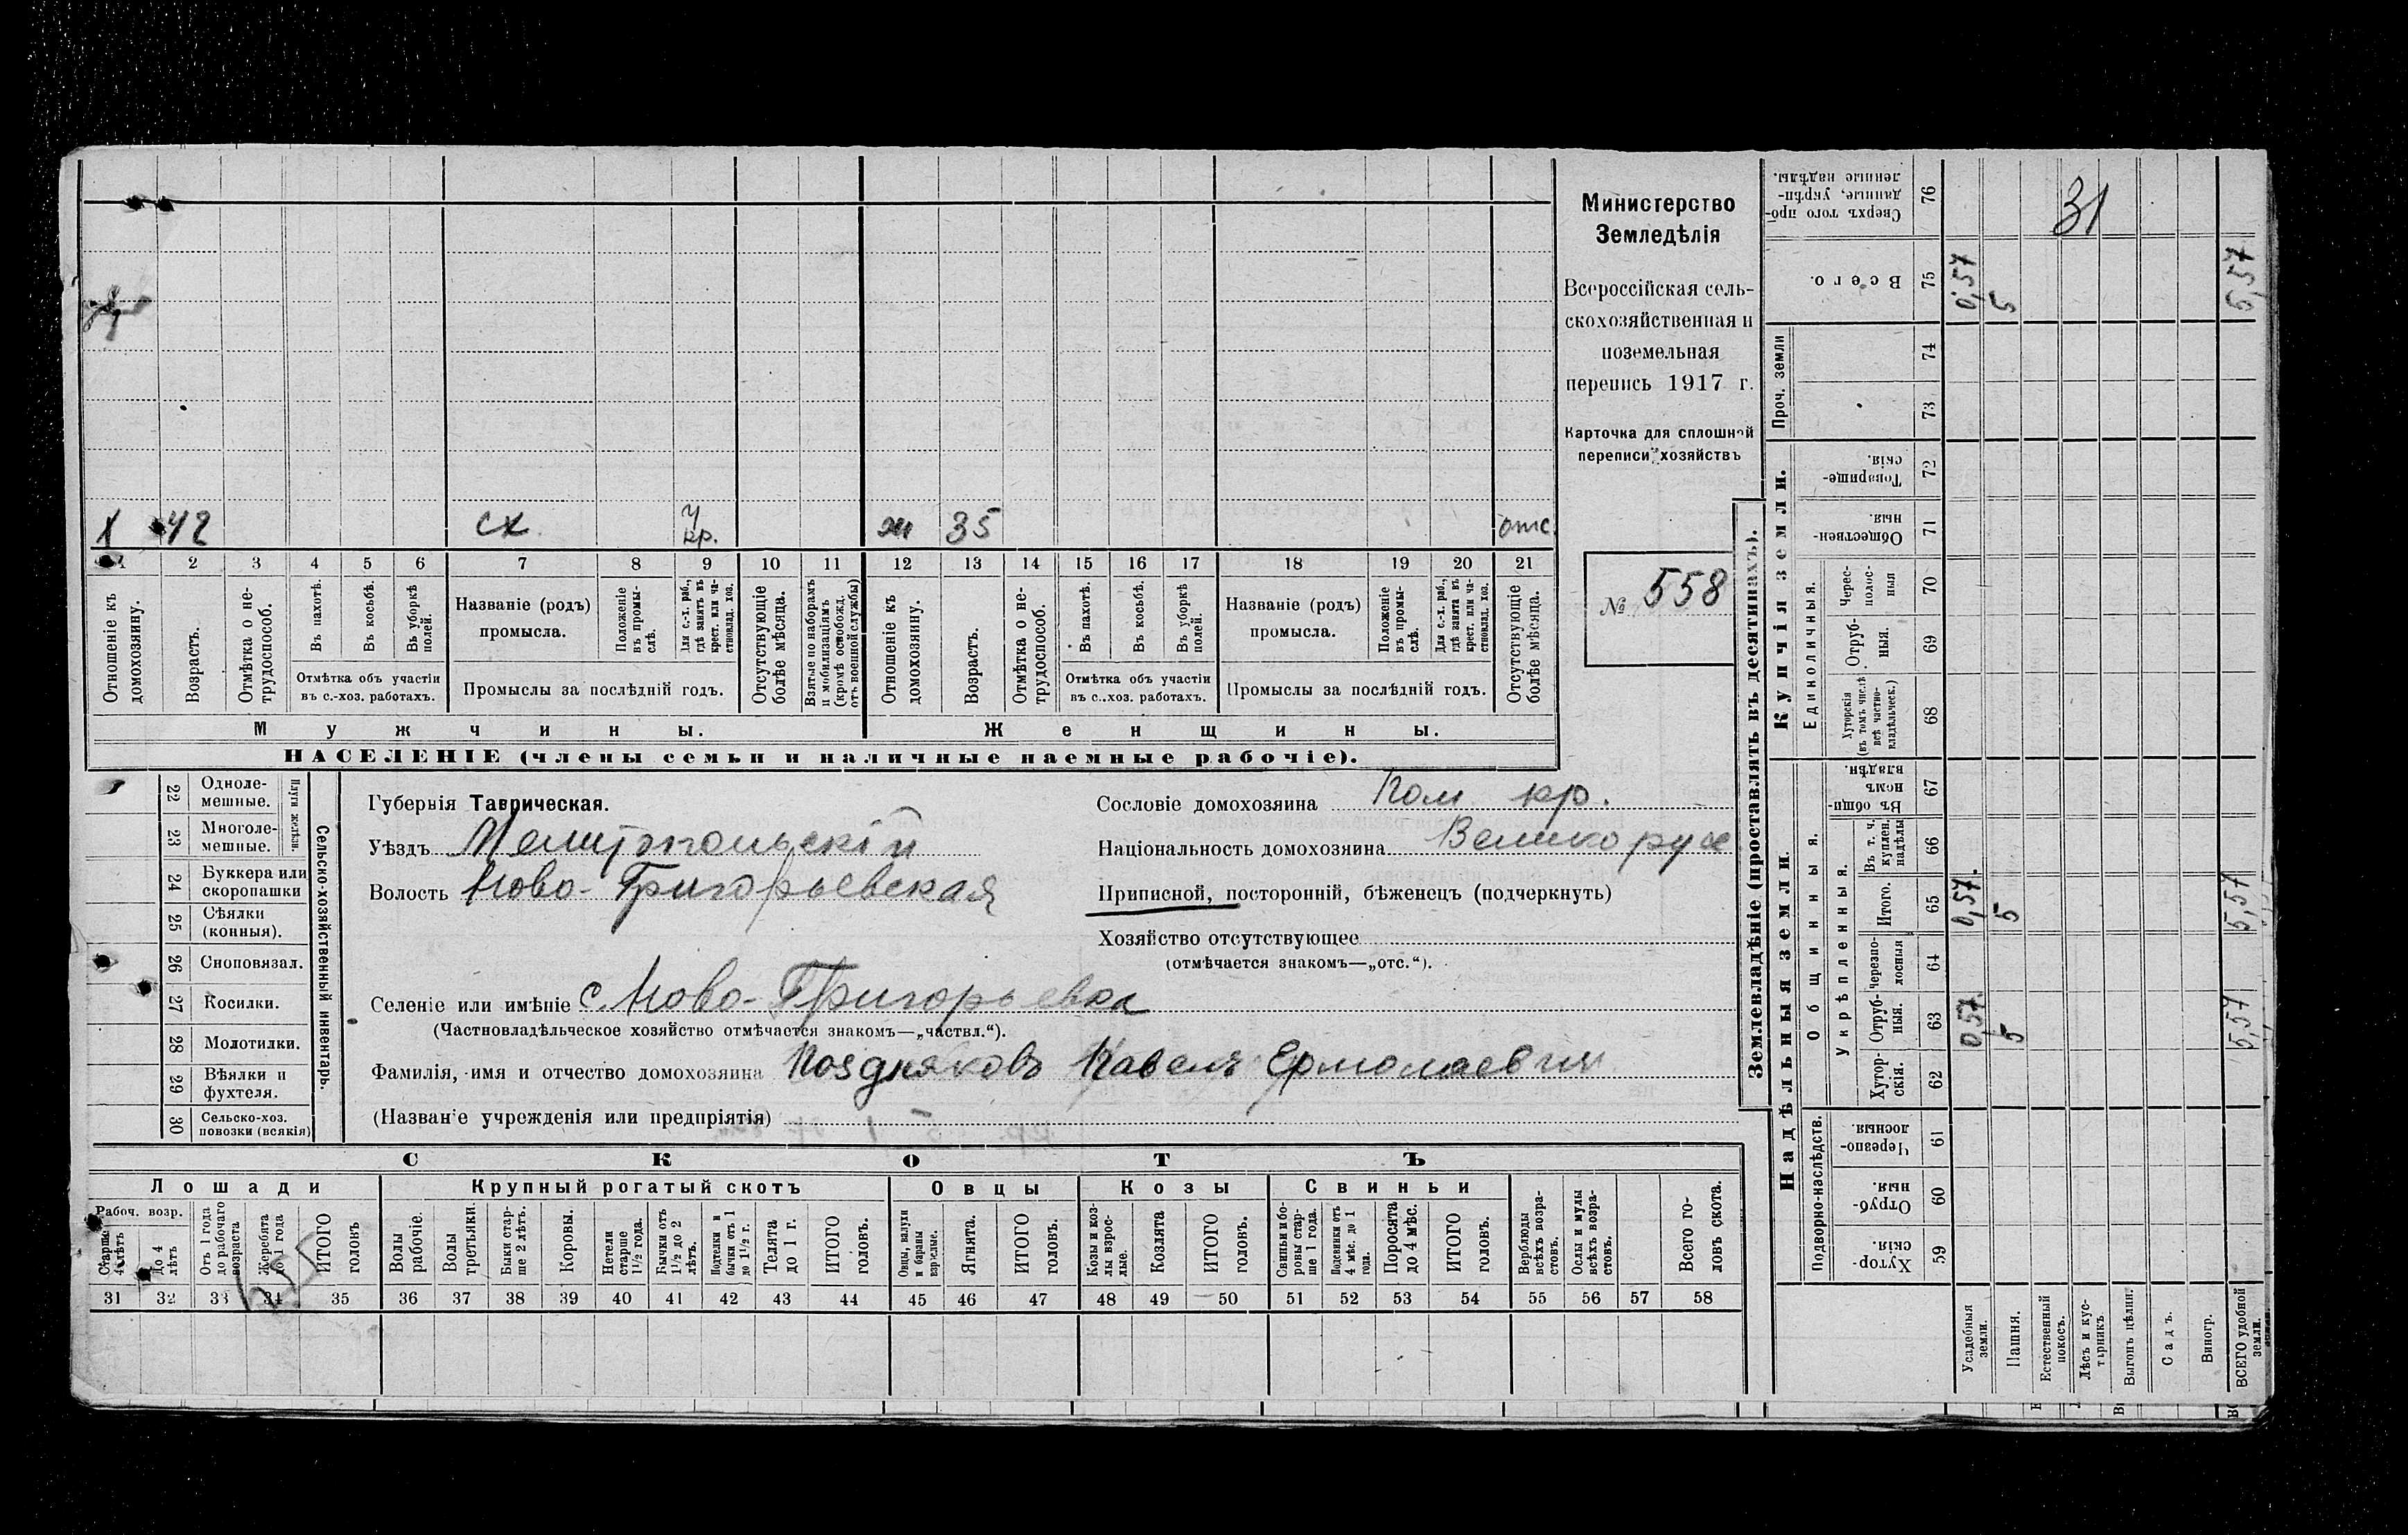 Министерство
Земледѣлія
Всероссійская сель-
скохозяйственная и
поземельная
перепись 1917 г.
Карточка для сплошной
переписи хозяйствъ
№ 558
х 42 сх ч кр. ж 35 отс.
1 2 3 4 5 6 7 8 9 10 11 12 13 14 15 16 17 18 19 20 21
Отношеніе къ домохозяину.
Возрастъ.
Отмѣтка о не-трудоспособ.
Въ пахотѣ.
Въ косьбѣ.
Въ уборкѣ полей.
Отмѣтка объ участіи
въ с.-хоз. работахъ.
Названіе (родъ)
промысла.
Положеніе въ промы-слѣ.
Для с.-х. раб., гдѣ занятъ въ крест. или ча-стновлад. хоз.
Промыслы за послѣдній годъ.
Отсутствующіе болѣе мѣсяца.
Взятые по наборамъ и мобилизаціямъ (кромѣ освобожд. отъ военной службы)
Отношеніе къ домохозяину.
Возрастъ.
Отмѣтка о не-трудоспособ.
Въ пахотѣ.
Въ косьбѣ.
Въ уборкѣ полей.
Отмѣтка объ участіи
въ с.-хоз. работахъ.
Названіе (родъ)
промысла.
Положеніе въ промы-слѣ.
Для с.-х. раб., гдѣ занята въ крест. или ча-стновлад. хоз.
Промыслы за послѣдній годъ.
Отсутствующіе болѣе мѣсяца.
Мужчины.
Женщины.
НАСЕЛЕНІЕ (члены семьи и наличные наемные рабочіе).
22 Одноле-мешные.
23 Многоле-мешные.
Плуги желѣзн.
24 Буккера или скоропашки
25 Сѣялки (конныя).
26 Сноповязал.
27 Косилки.
28 Молотилки.
29 Вѣялки и фухтеля.
30 Сельско-хоз. повозки (всякія)
Сельско-хозяйственный инвентарь.
Губернія Таврическая.
Уѣздъ Мелитопольскій
Волость Ново-Григорьевская
Селеніе или имѣніе с. Ново-Григорьевка
(Частновладѣльческое хозяйство отмѣчается знакомъ—„частвл.“).
Фамилія, имя и отчество домохозяина Поздняковъ Павелъ Ермолаевич
(Названіе учрежденія или предпріятія)
Сословіе домохозяина Пом кр.
Національность домохозяина Великорус
Приписной, посторонній, бѣженецъ (подчеркнуть)
Хозяйство отсутствующее
(отмѣчается знакомъ—„отс.“).
СКОТЪ
Лошади
Рабоч. возр.
Старше 4 лѣтъ
До 4 лѣтъ
Отъ 1 года до рабочаго возраста
Жеребята до 1 года
ИТОГО головъ
Крупный рогатый скотъ
Волы рабочіе.
Волы третьяки.
Быки стар-ше 2 лѣтъ.
Коровы.
Нетели старше 1½ года.
Бычки отъ 1½ до 2 лѣтъ.
Подтелки и бычки отъ 1 до 1½ г.
Телята до 1 г.
ИТОГО головъ.
Овцы
Овцы, валухи и бараны взрослые.
Ягнята.
ИТОГО головъ.
Козы
Козы и коз-лы взрос-лые.
Козлята
ИТОГО головъ.
Свиньи
Свиньи и бо-ровы стар-ше 1 года.
Подсвинки отъ 4 мѣс. до 1 года.
Поросята до 4 мѣс.
ИТОГО головъ.
Верблюды всѣхъ возра-стовъ.
Ослы и мулы всѣхъ возра-стовъ.
Всего го-ловъ скота.
31 32 33 34 35 36 37 38 39 40 41 42 43 44 45 46 47 48 49 50 51 52 53 54 55 56 57 58
Землевладѣніе (проставлять въ десятинахъ).
Надѣльныя земли.
Подворно-наслѣдств.
59 Хутор-скія
60 Отруб-ныя
61 Черезпо-лосныя
Общинныя.
Укрѣпленныя.
62 Хутор-скія.
63 Отруб-ныя. 0,57 5 5,57
64 черезпо-лосныя
65 Итого. 0,57. 5 5,57
66 Въ т. ч. куплен. надѣлы
67 Въ общи-номъ владѣн.
Купчія земли.
Единоличныя.
68 Хуторскія (въ томъ числѣ всѣ частно-владѣльческ.)
69 Отруб-ныя.
70 Черес-полос-ныя
71 Обществен-ныя.
72 Товарище-скія.
Проч. земли
73
74
75 Всего. 0,57 5 5,57
76 Сверхъ того про-данные, укрѣп-ленные надѣлы.
31
Усадебныя земли.
Пашня.
Естественный покосъ.
Лѣсъ и кус-тарникъ.
Выгонъ цѣлин.
Садъ.
Виногр.
ВСЕГО удобной земли.